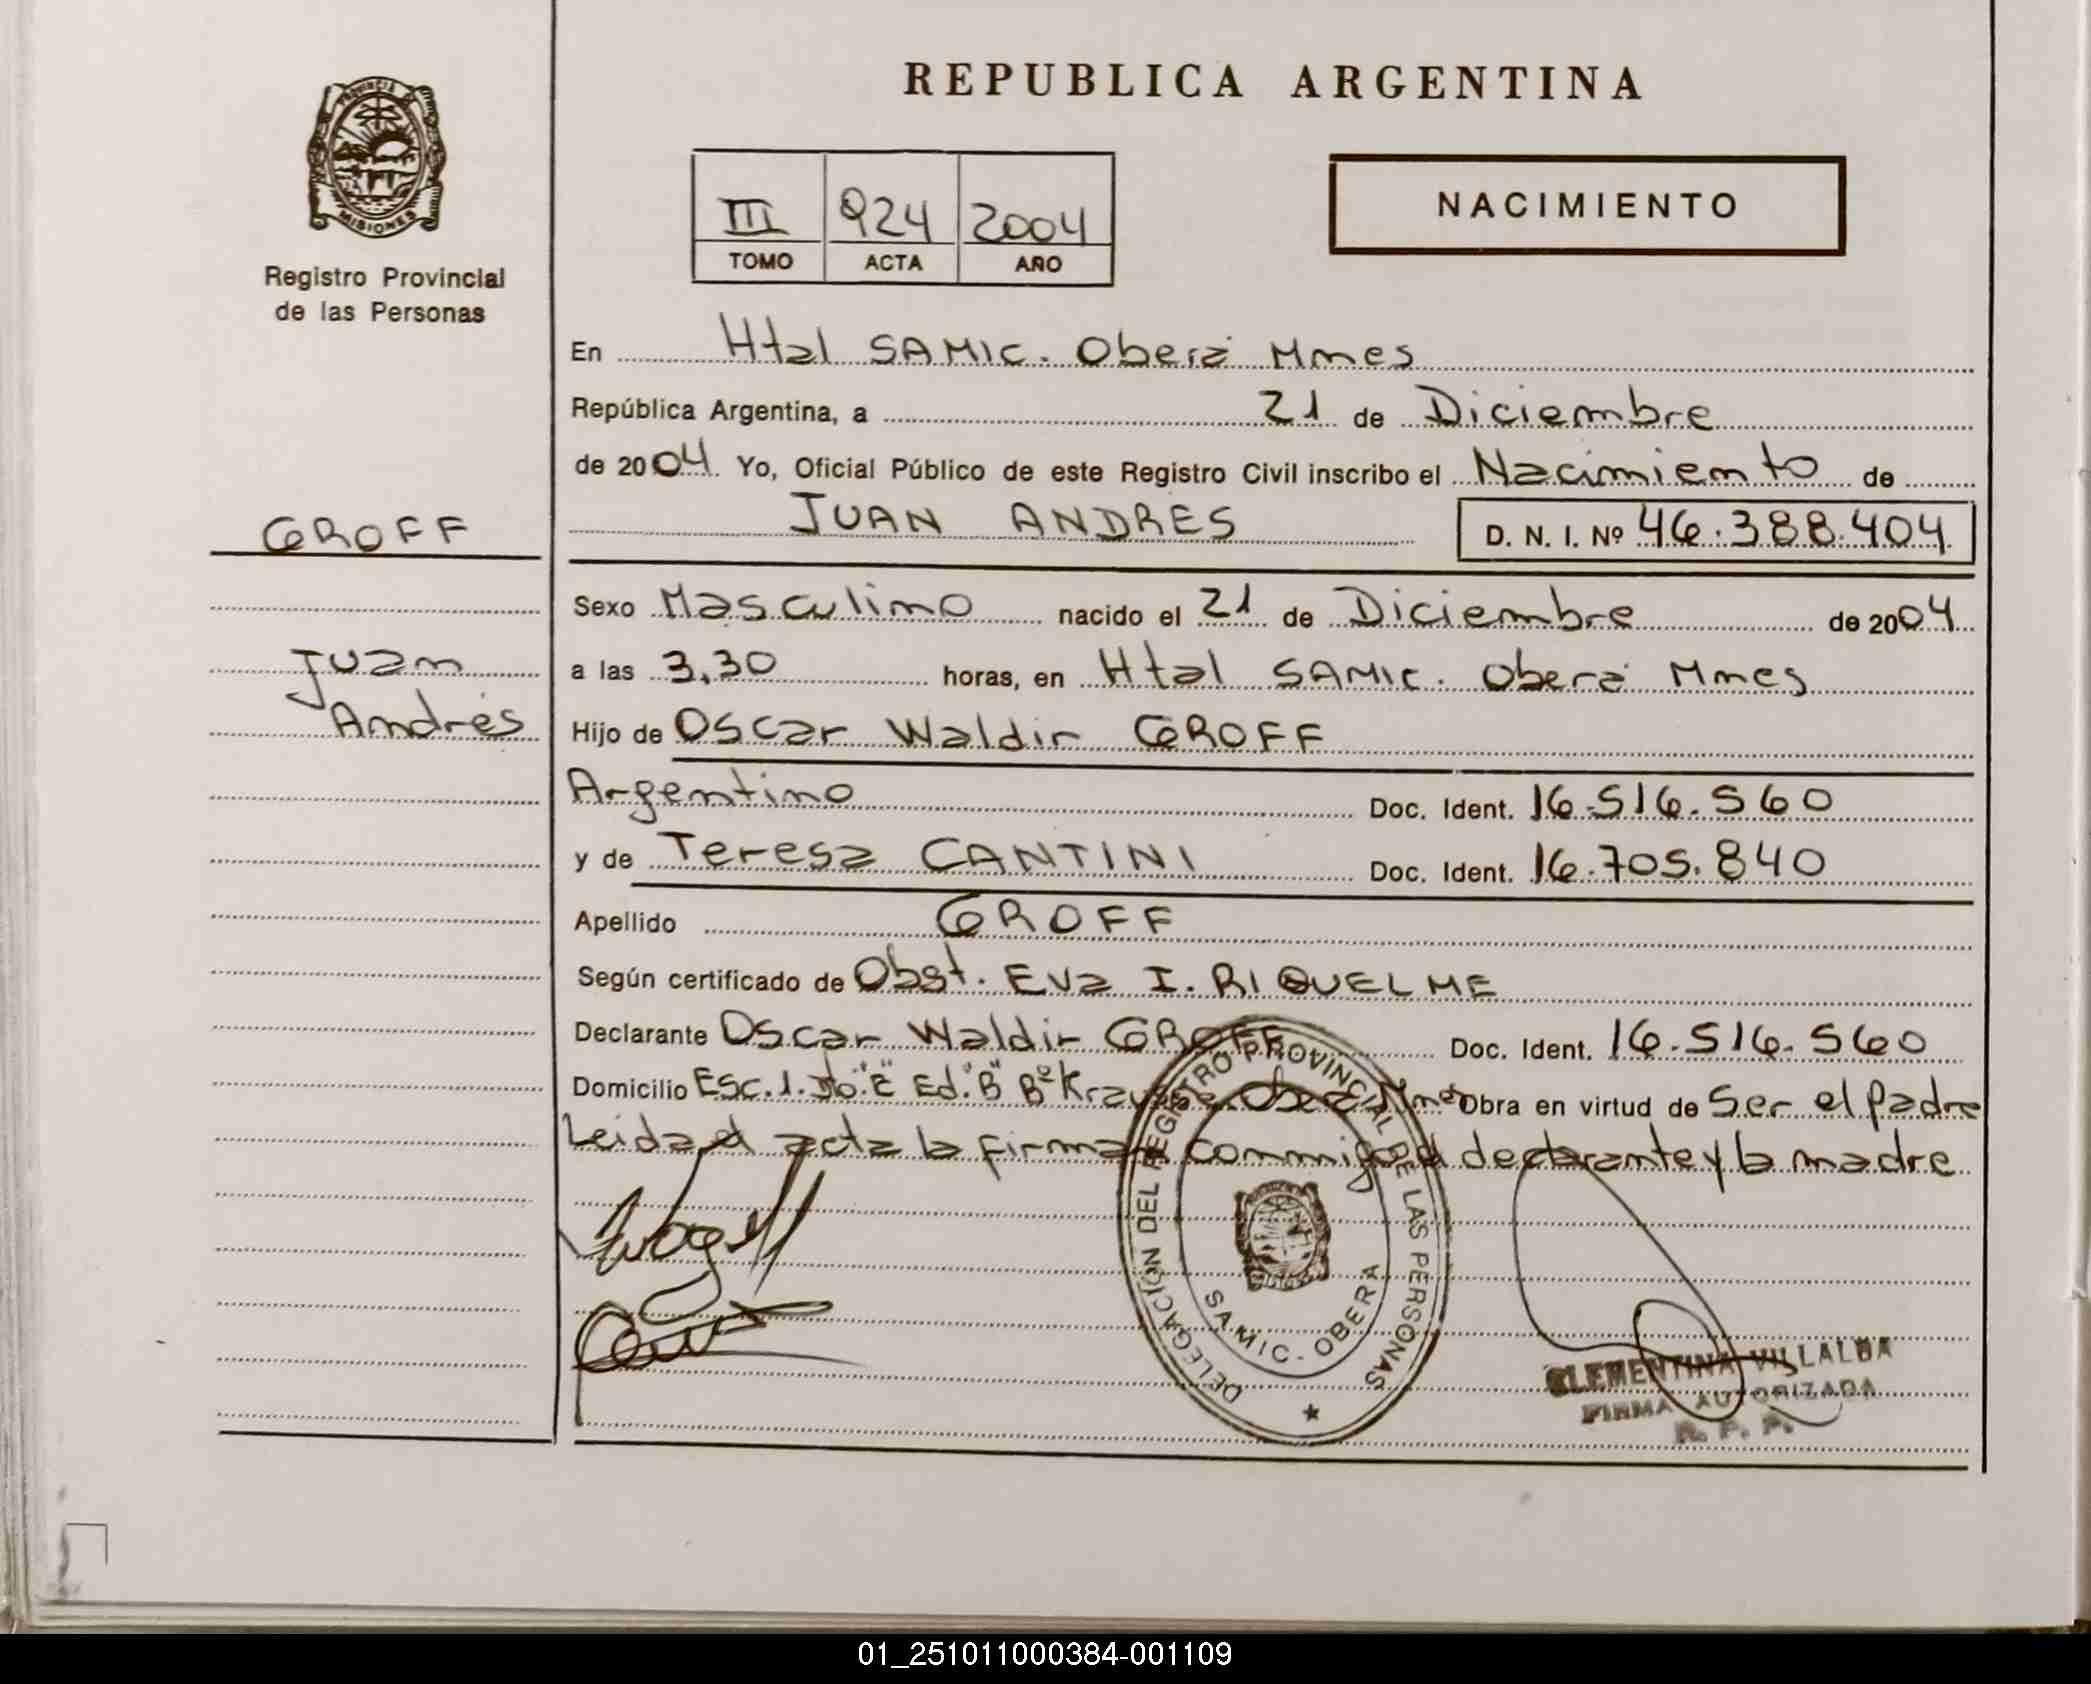 REPUBLICA ARGENTINA
PROVINCIA DE
MISIONES
Registro Provincial
de las Personas
III 924 2004
TOMO ACTA AÑO
NACIMIENTO
En Htal SAMIC. Oberá Mnes
República Argentina, a 21 de Diciembre
de 2004. Yo, Oficial Público de este Registro Civil inscribo el Nacimiento de
GROFF
JUAN ANDRES D. N. I. Nº 46.388.404
Sexo Masculino nacido el 21 de Diciembre de 2004
Juan
a las 3,30 horas, en Htal SAMIC. Oberá Mnes
Andrés
Hijo de Oscar Waldir GROFF
Argentino Doc. Ident. 16.516.560
y de Teresa CANTINI Doc. Ident. 16.705.840
Apellido GROFF
Según certificado de Obst. Eva I. RIQUELME
Declarante Oscar Waldir GROFF Doc. Ident. 16.516.560
Domicilio Esc. 1. "E" Ed. "B" Bº Oberá Mnes Obra en virtud de Ser el padre
Leida el acta la firman conmigo el declarante y la madre
DELEGACIÓN DEL REGISTRO PROVINCIAL DE LAS PERSONAS
SAMIC - OBERA
CLEMENTINA VILLALBA
FIRMA AUTORIZADA
R. P. P.
01_251011000384-001109